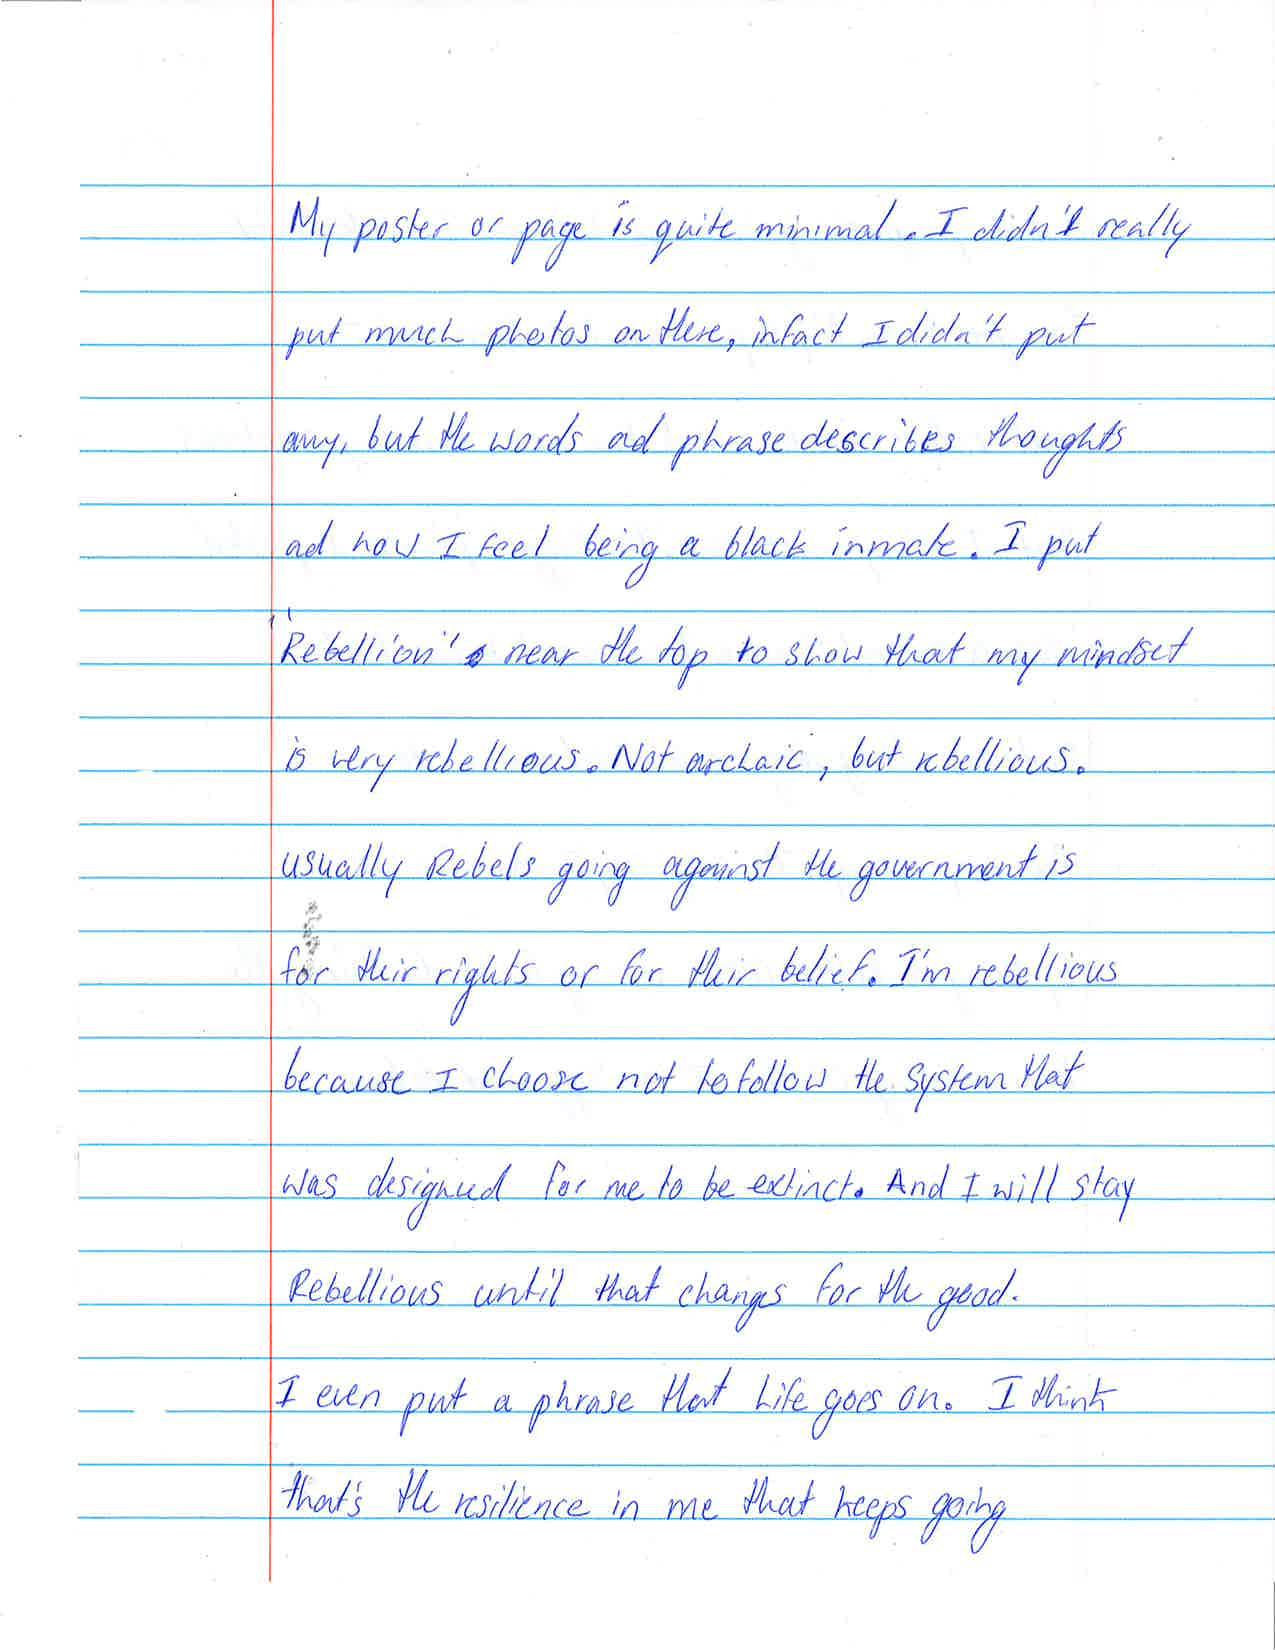 My poster or page is quite minimal. I didn't really
put much photos on there, infact I didn't put
any, but the words ad phrase describes thoughts
ad how I feel being a black inmate. I put
"Rebellion" near the top to show that my mindset
is very rebellious. Not archaic, but rebellious.
usually Rebels going against the government is
for their rights or for their belief. I'm rebellious
because I choose not to follow the system that
was designed for me to be extinct. And I will stay
Rebellious until that changes for the good.
I even put a phrase that Life goes on. I think
that's the resilience in me that keeps going